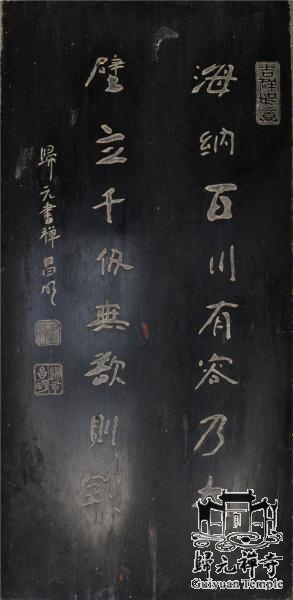 吉祥如意
海納百川有容乃大
壁立千仞無欲則剛
歸元書禪昌明
歸元禪寺
Guiyuan Temple